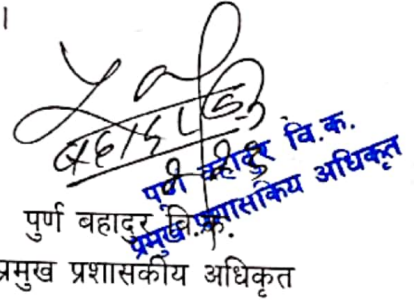 ।
पुर्ण बहादुर वि.क.
प्रमुख प्रशासकिय अधिकृत
पुर्ण बहादुर वि.क.
प्रमुख प्रशासकीय अधिकृत